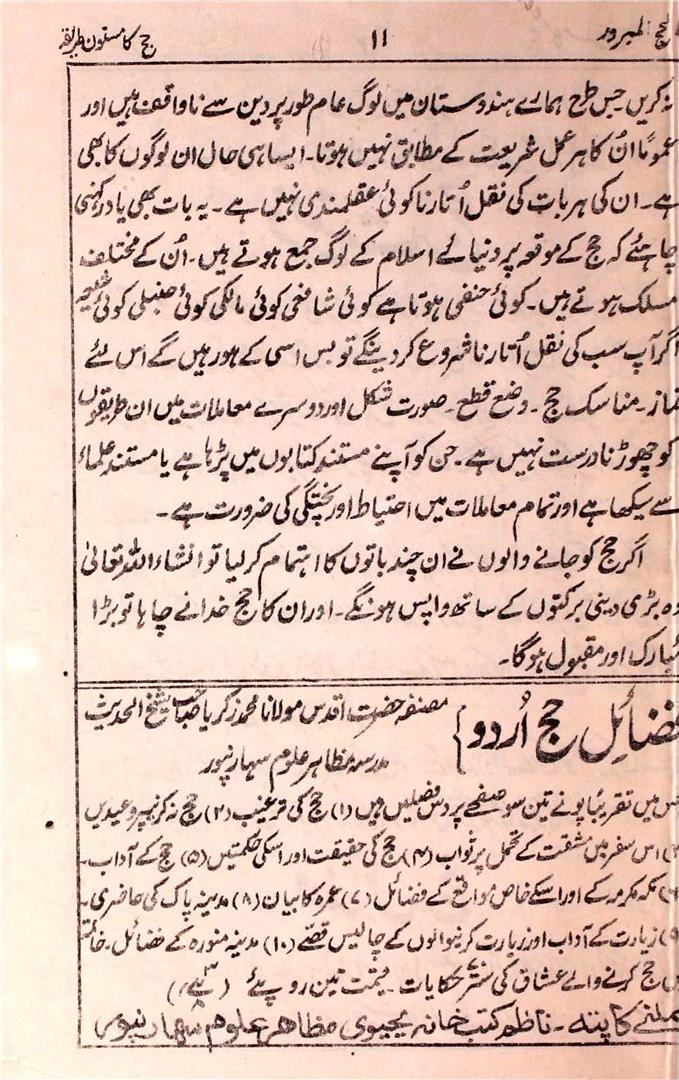 حج المبرور ۱۱ حج کا مسنون طریقہ
نہ کریں جس طرح ہمارے ہندوستان میں لوگ عام طور پر دین سے ناواقف ہیں اور
عموماً اُن کا ہر عمل شریعت کے مطابق نہیں ہوتا۔ ایسا ہی حال ان لوگوں کا بھی
ہے۔ ان کی ہر بات کی نقل اُتارنا کوئی عقلمندی نہیں ہے۔ یہ بات بھی یاد رکھنی
چاہئے کہ حج کے موقعہ پر دنیائے اسلام کے لوگ جمع ہوتے ہیں۔ اُن کے مختلف
مسلک ہوتے ہیں۔ کوئی حنفی ہوتا ہے کوئی شافعی کوئی مالکی کوئی حنبلی کوئی شیعہ
اگر آپ سب کی نقل اُتارنا شروع کر دینگے تو بس اسی کے ہو رہیں گے اس لئے
نماز۔ مناسک حج۔ وضع قطع۔ صورت شکل اور دوسرے معاملات میں ان طریقوں
کو چھوڑنا درست نہیں ہے۔ جن کو آپنے مستند کتابوں میں پڑہا ہے یا مستند علماء
سے سیکھا ہے اور تمام معاملات میں احتیاط اور پختگی کی ضرورت ہے۔
اگر حج کو جانے والوں نے ان چند باتوں کا اہتمام کر لیا تو انشاء اللہ تعالیٰ
وہ بڑی دینی برکتوں کے ساتھ واپس ہونگے۔ اور ان کا حج خدا نے چاہا تو بڑا
مُبارک اور مقبول ہوگا۔
فضائلِ حج اُردو} مصنفہ حضرت اقدس مولانا محمد زکریا صاحب شیخ الحدیث
مدرسہ مظاہر علوم سہارنپور
جس میں تقریباً پونے تین سو صفحے پر دس فصلیں ہیں (۱) حج کی ترغیب (۲) حج نہ کرنیپر وعیدیں
(۳) اس سفر میں مشقت کے تحمل پر ثواب (۴) حج کی حقیقت اور اسکی حکمتیں (۵) حج کے آداب۔
(۶) مکہ مکرمہ کے اور اسکے خاص مواقع کے فضائل (۷) عمرہ کا بیان (۸) مدینہ پاک کی حاضری۔
(۹) زیارت کے آداب اور زیارت کرنیوالوں کے چالیس قصّے (۱۰) مدینہ منورہ کے فضائل۔ خاتمہ
میں حج کرنے والے عشاق کی ستّر حکایات۔ قیمت تین روپئے
ملنے کا پتہ۔ ناظم کتب خانہ یحیوی مظاهر علوم سہارنپور